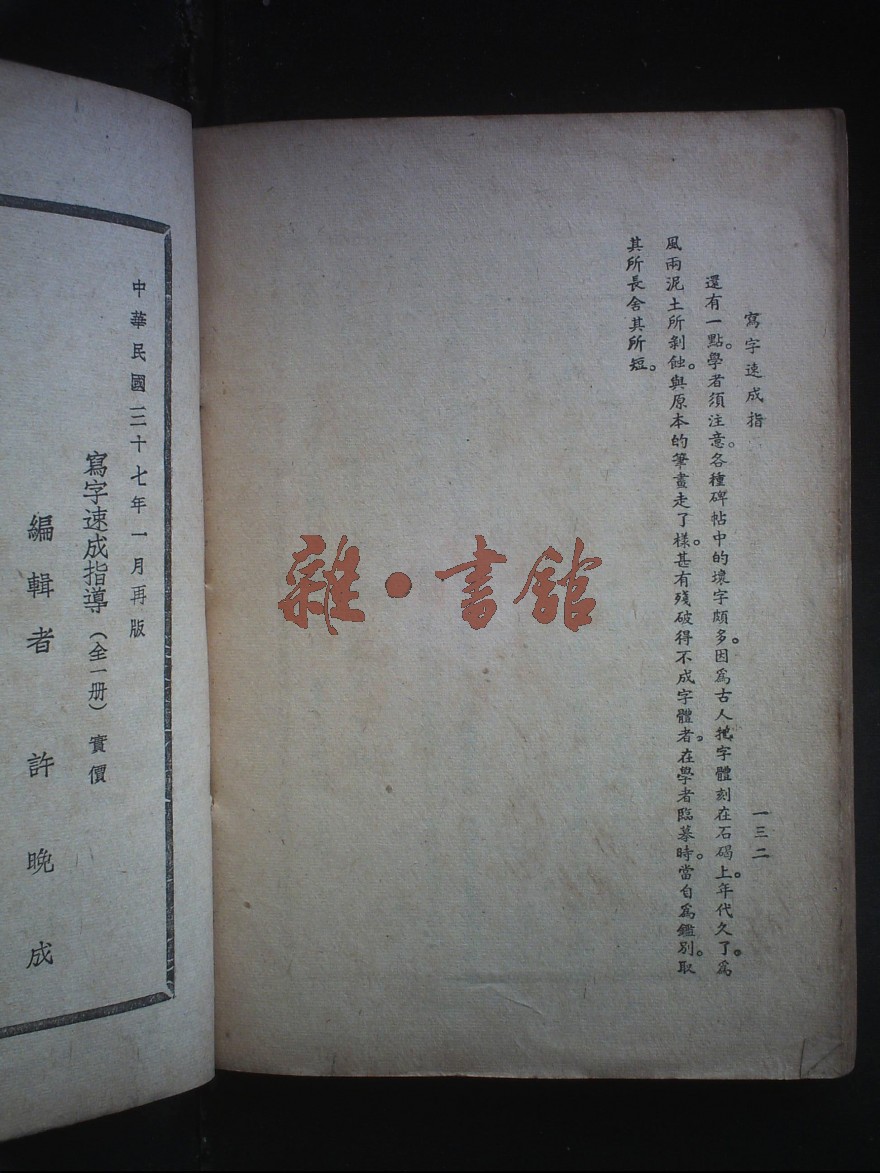 寫字速成指
一三二
還有一點。學者須注意。各種碑帖中的壞字頗多。因爲古人把字體刻在石碣上。年代久了。爲
風雨泥土所剝蝕。與原本的筆畫走了樣。甚有殘破得不成字體者。在學者臨摹時。當自爲鑑別。取
其所長舍其所短。
雜·書館
中華民國三十七年一月再版
寫字速成指導（全一册）實價
編輯者 許晚成